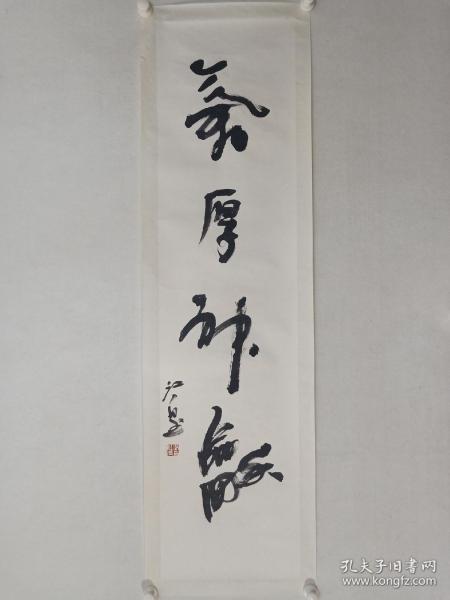 氣厚神龢
孔夫子旧书网
www.kongfz.com